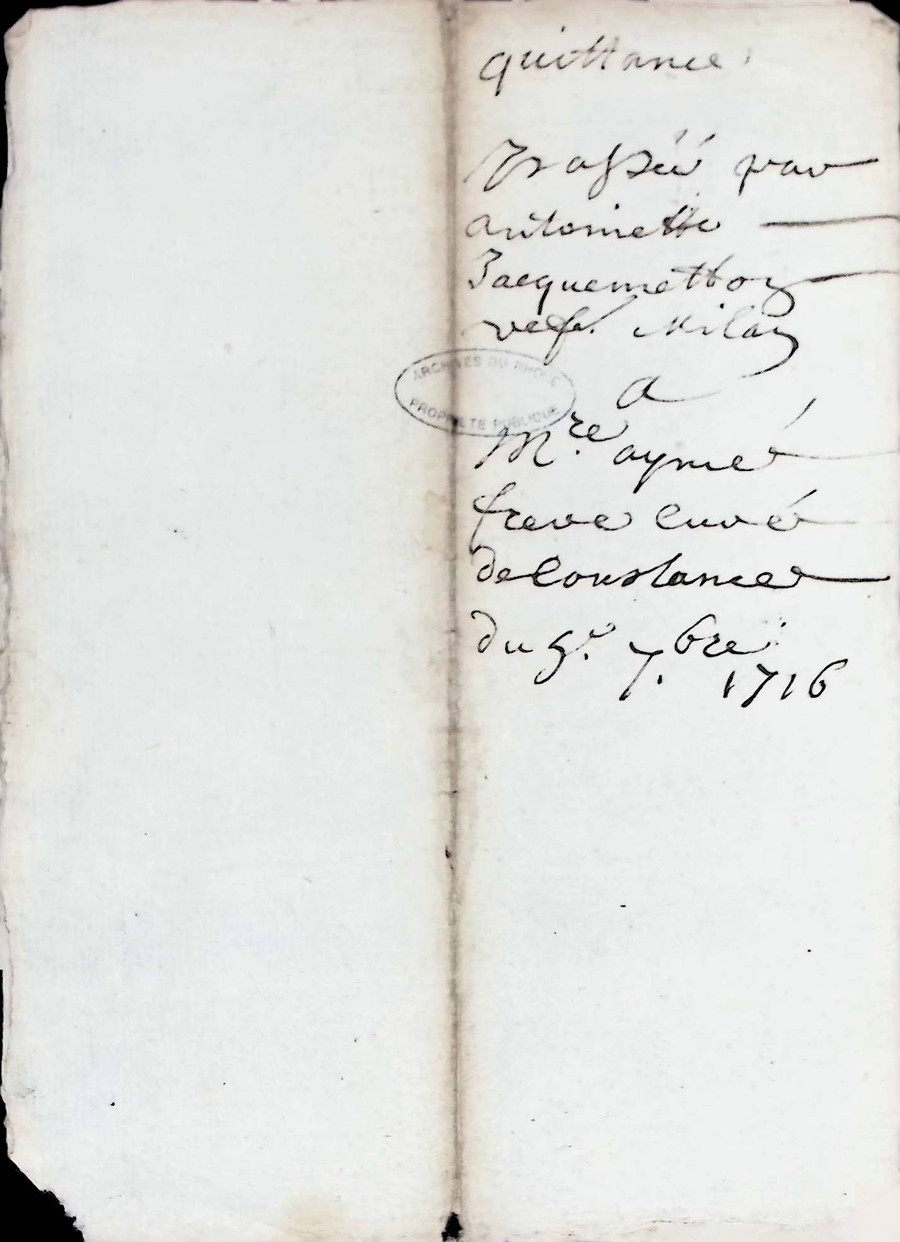 quittance
passée par
antoinette
Jacquemetton
vefe. Milan
ARCHIVES DU RHONE
PROPRIETE PUBLIQUE
a
Mre. aymé
frere curé
de Coustance
du 9e. 7.bre
1716